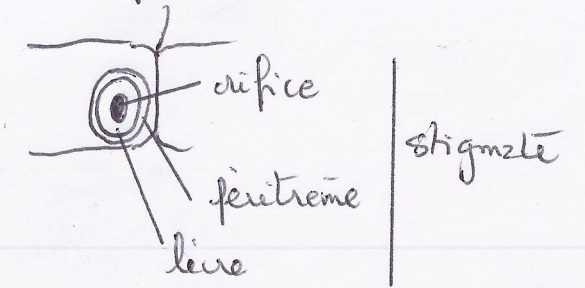 orifice
stigmate
péritrème
lèvre